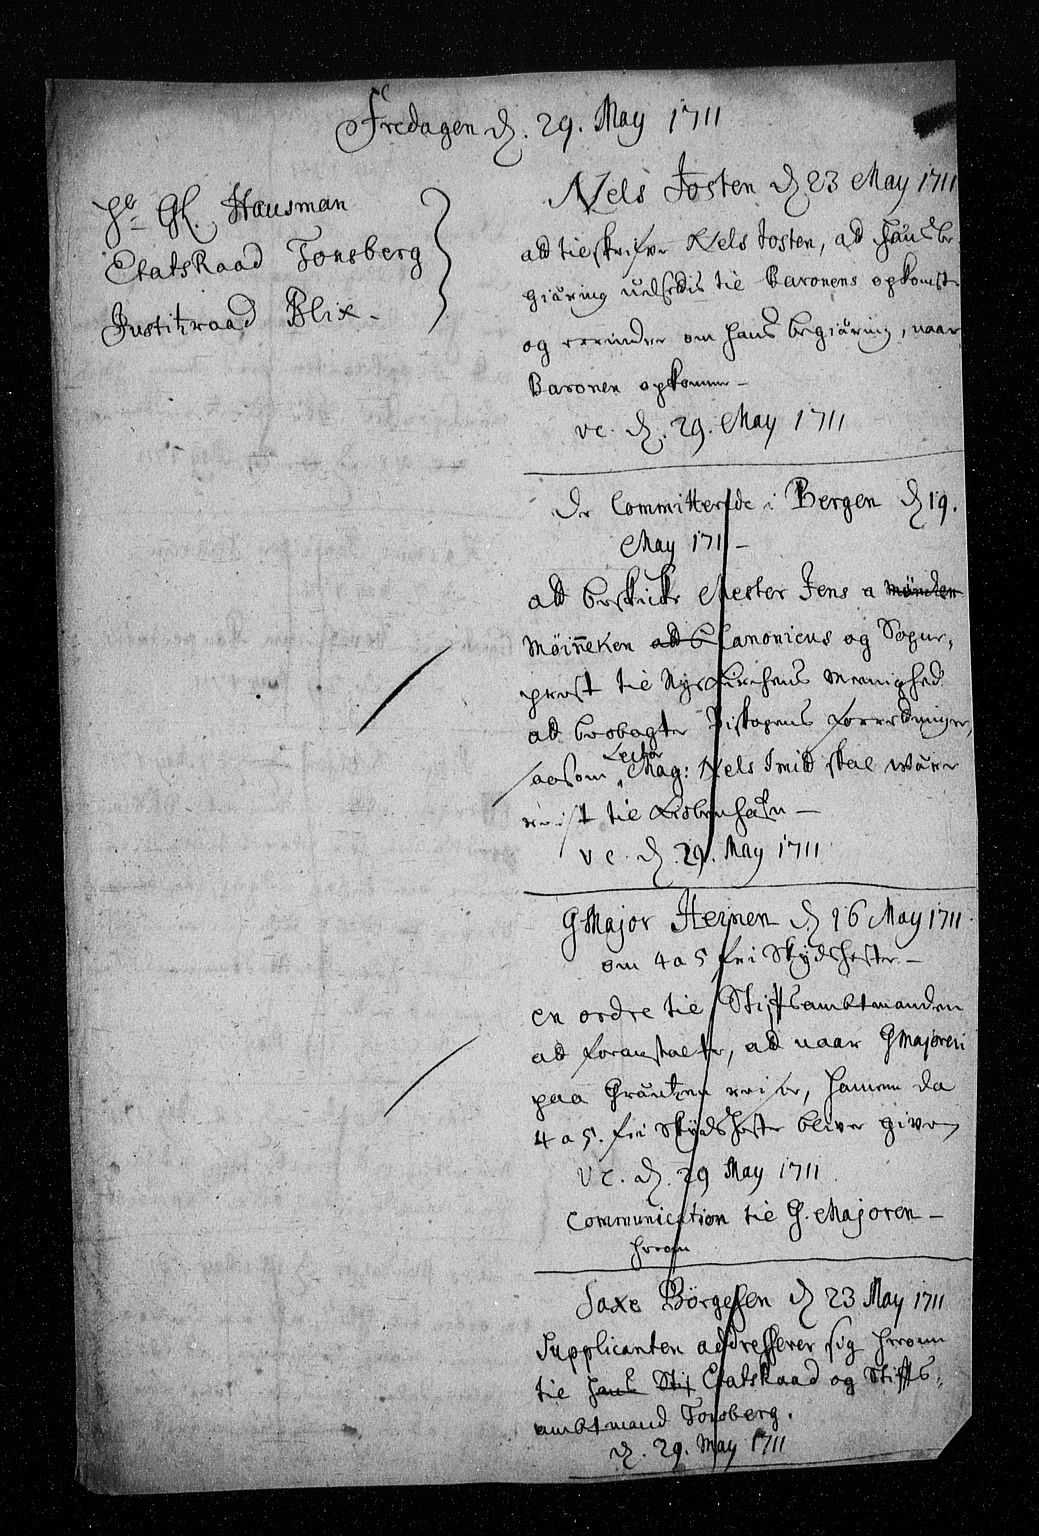 Fredagen d. 29. May 1711
Hr. Gl. Hausman
Etatsraad Tonsberg
Justitzraad Blix.
Nels Josten d 23 May 1711
ad tilskrifve Nels Josten, ad hans be
giäring udsettis til Baronens opkomst
og erinder om hans begiäring, naar
Baronen opkommer
vc. d. 29. May 1711
De Committerede i Bergen d 19.
May 1711
att beskicke Mester Jens a Mönchen
Möinneken ad b Canonicus og Sogne-
prest til Nyekirchens Menighed
ad beobagte Biskopens forretninger,
saasom Lector Mag: Nels Smid skal være
reist til Kiøbenhafn
vc. d. 29. May 1711
GMajor Heinen d 16 May 1711.
om 4 a 5 fri Skydshester
en ordre til Stiftsambtmanden
ad foranstalte, ad naar GMajoren
paa Gräntzen reiser, hannem da
4 a 5. fri Skydshester bliver given
vc. d. 29 May 1711.
Communication til G. Majoren
herom
Saxe Börgesen d 23 May 1711
Supplicanten addresserer sig herom
til hans Stif Etatskaad og Stifts-
ambtmand Tonsberg.
d. 29. May 1711